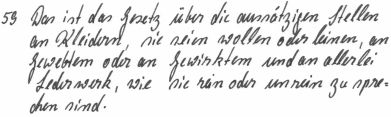 59 Das ist das Gesetz über die aussätzigen Stellen
an Kleidern, sie seien wollen oder leinen, an
Gewebtem oder an Gewirktem und an allerlei
Lederwerk, wie sie rän oder unrein zu spre-
chen sind.